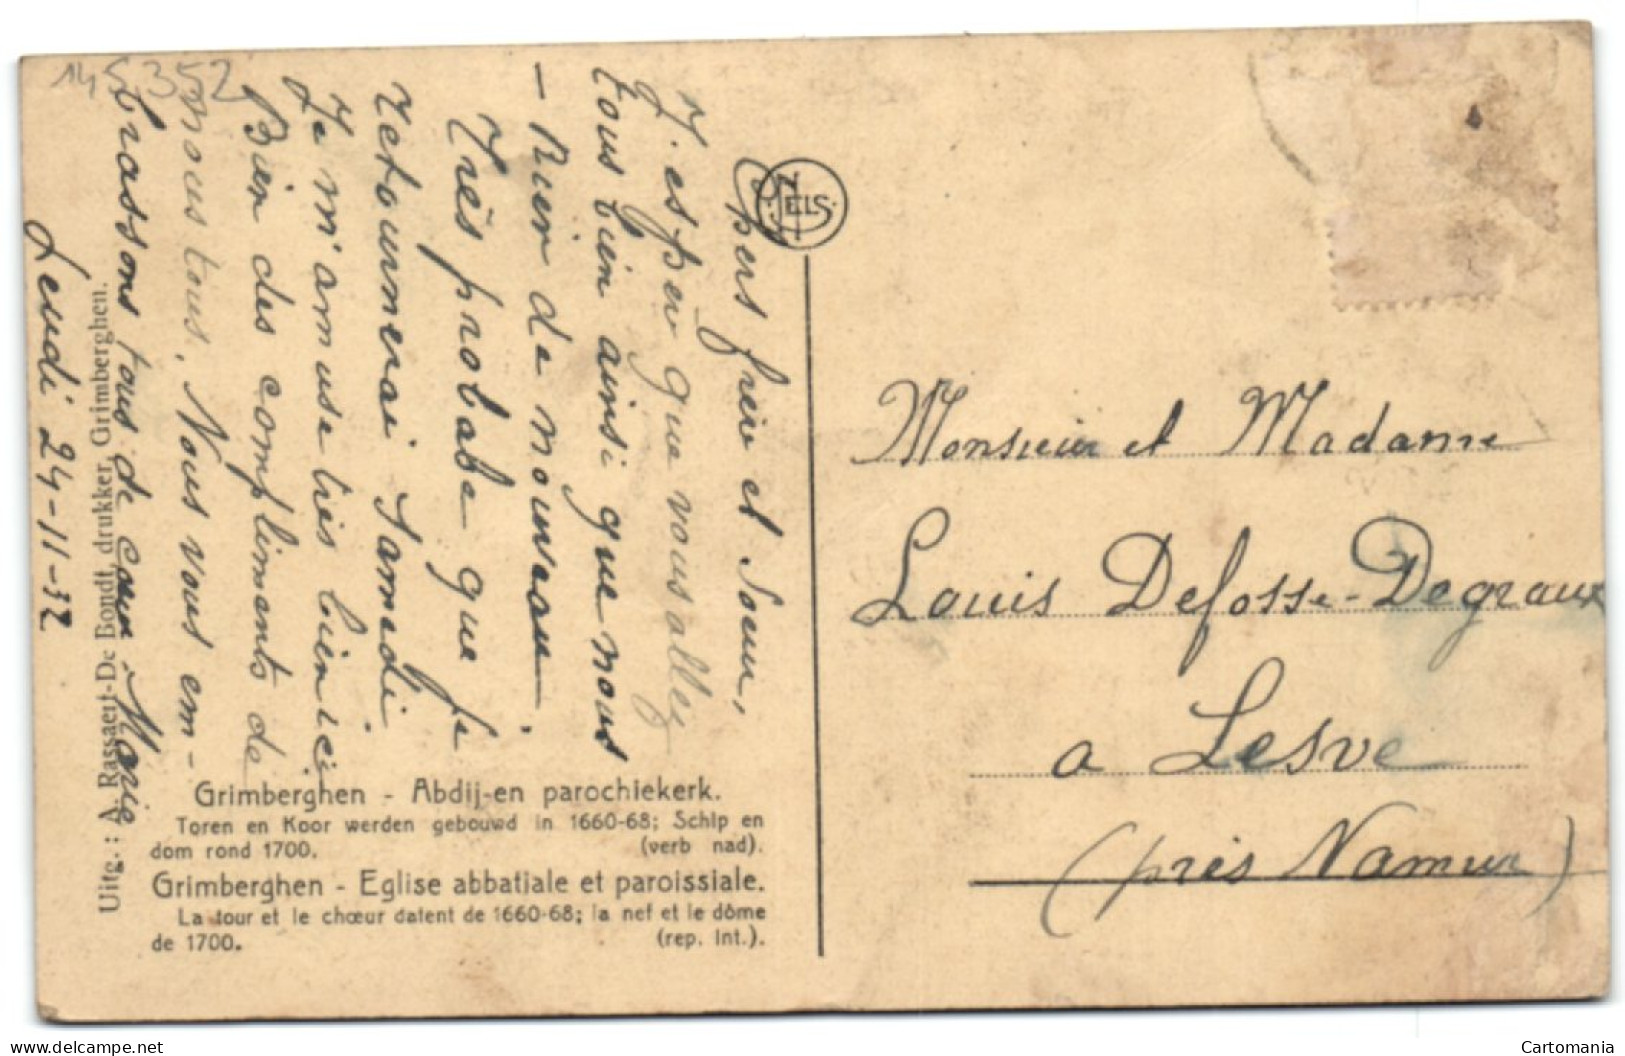 145352
Chers frère et Soeur,
J'espèr que vous allez
tous bien ainsi que nous
- Rien de nouveau.
Très probable que je
retournerai Samedi
Je m'amuse très bien ici
Bien des compliments de
nous tous. Nous vous em-
brassons tous de cœur. Marie
Jeudi 24-11-32
Uitg.: A. Rassaert-De Bondt, drukker, Grimberghen.
NELS
Grimberghen - Abdij-en parochiekerk.
Toren en Koor werden gebouwd in 1660-68; Schip en
dom rond 1700. (verb nad).
Grimberghen - Eglise abbatiale et paroissiale.
La tour et le chœur datent de 1660-68; la nef et le dôme
de 1700. (rep. int.).
Monsieur et Madame
Louis Defosse-Degraux
a Lesve
(près Namur)
Cartomania